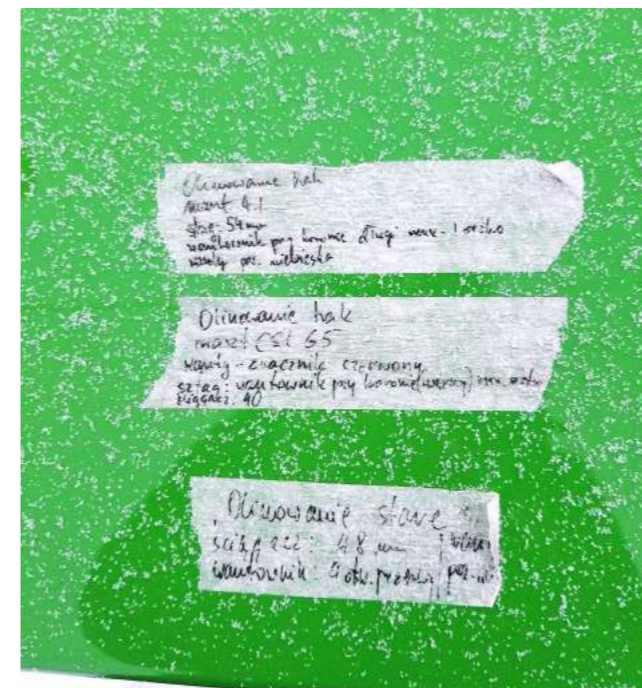 Olinowanie hak
maszt 4.1
sztag - 54 mm
wantownik przy koronie długi
wanty poz. niebieska
Olinowanie hak
maszt CSI 65
wanty - znacznik czerwony
sztag: wantownik przy koronie
ściągacz: 40
Olinowanie stare
ściągacz: 48 mm
wantownik: 4 otw.